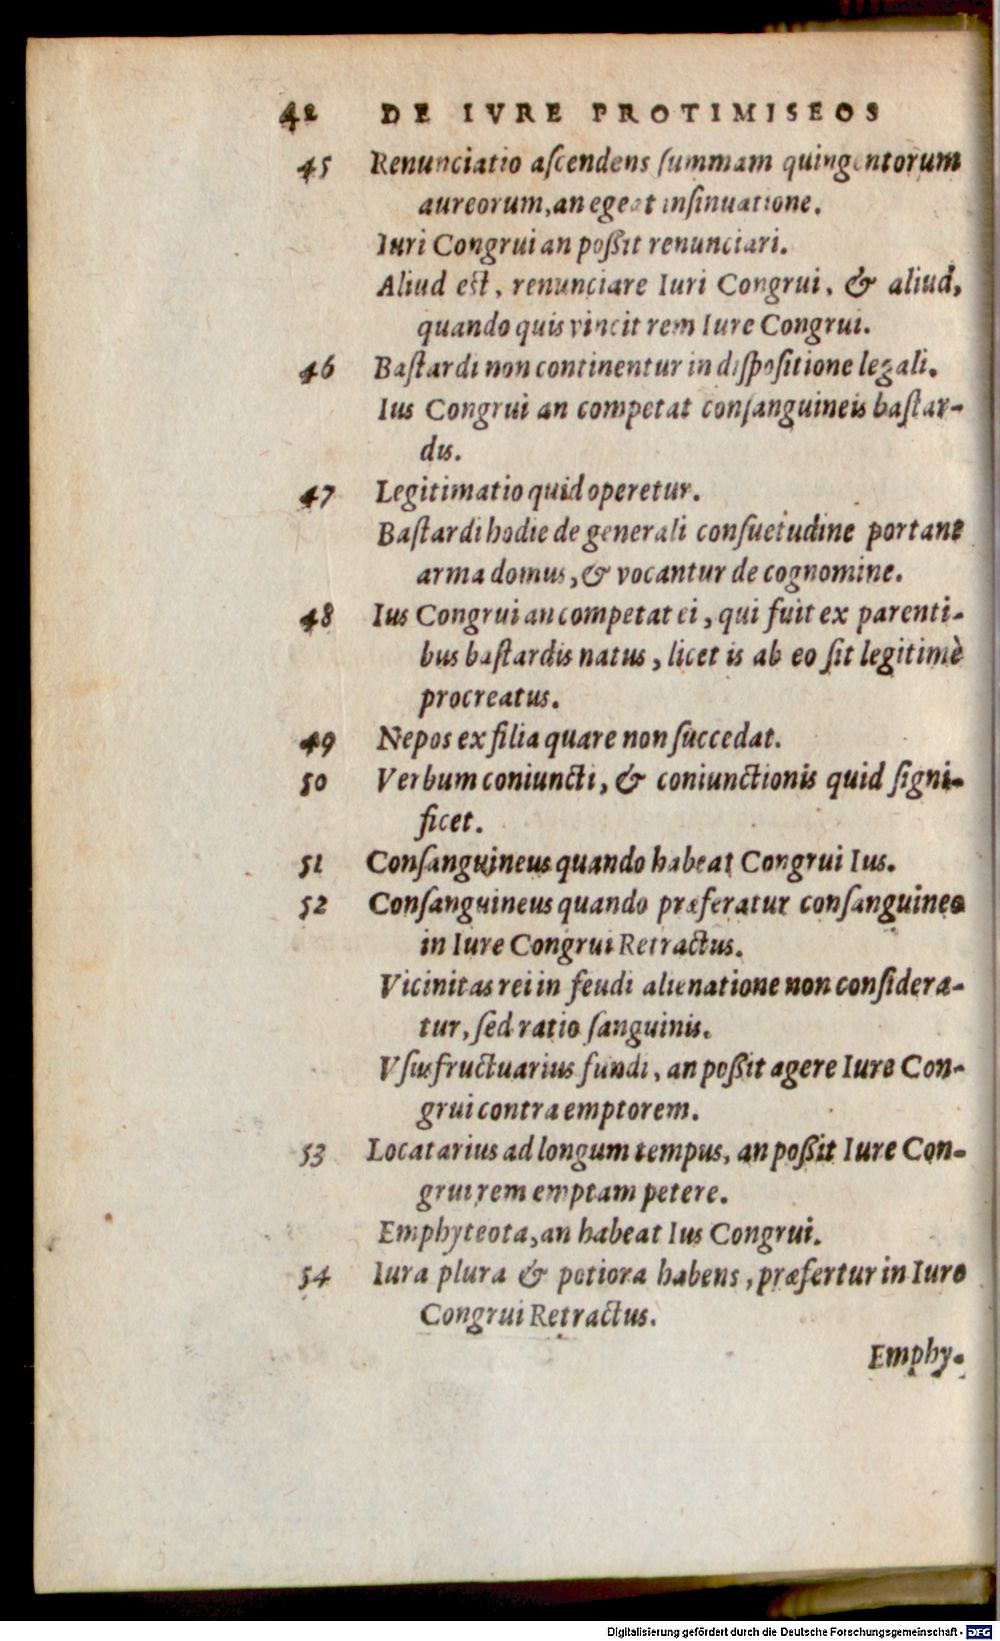 42 DE IVRE PROTIMISEOS
45 Renunciatio aſcendens ſummam quingentorum
aureorum, an egeat inſinuatione.
Iuri Congrui an poſſit renunciari.
Aliud est, renunciare Iuri Congrui, & aliud,
quando quis vincit rem Iure Congrui.
46 Baſtardi non continentur in diſpoſitione legali.
Ius Congrui an competat conſanguineis baſtar-
dis.
47 Legitimatio quid operetur.
Baſtardi hodie de generali conſuetudine portant
arma domus, & vocantur de cognomine.
48 Ius Congrui an competat ei, qui fuit ex parenti-
bus baſtardis natus, licet is ab eo ſit legitimè
procreatus.
49 Nepos ex filia quare non ſuccedat.
50 Verbum coniuncti, & coniunctionis quid ſigni-
ficet.
51 Conſanguineus quando habeat Congrui Ius.
52 Conſanguineus quando præferatur conſanguineo
in Iure Congrui Retractus.
Vicinitas rei in feudi alienatione non conſidera-
tur, ſed ratio ſanguinis.
Vſusfructuarius fundi, an poſſit agere Iure Con-
grui contra emptorem.
53 Locatarius ad longum tempus, an poſſit Iure Con-
grui rem emptam petere.
Emphyteota, an habeat Ius Congrui.
54 Iura plura & potiora habens, præfertur in Iure
Congrui Retractus.
Emphy-
Digitalisierung gefördert durch die Deutsche Forschungsgemeinschaft - DFG